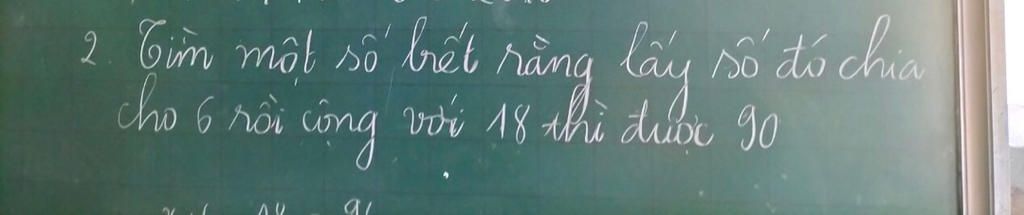 2. Tìm một số biết rằng lấy số đó chia
cho 6 rồi cộng với 18 thì được 90